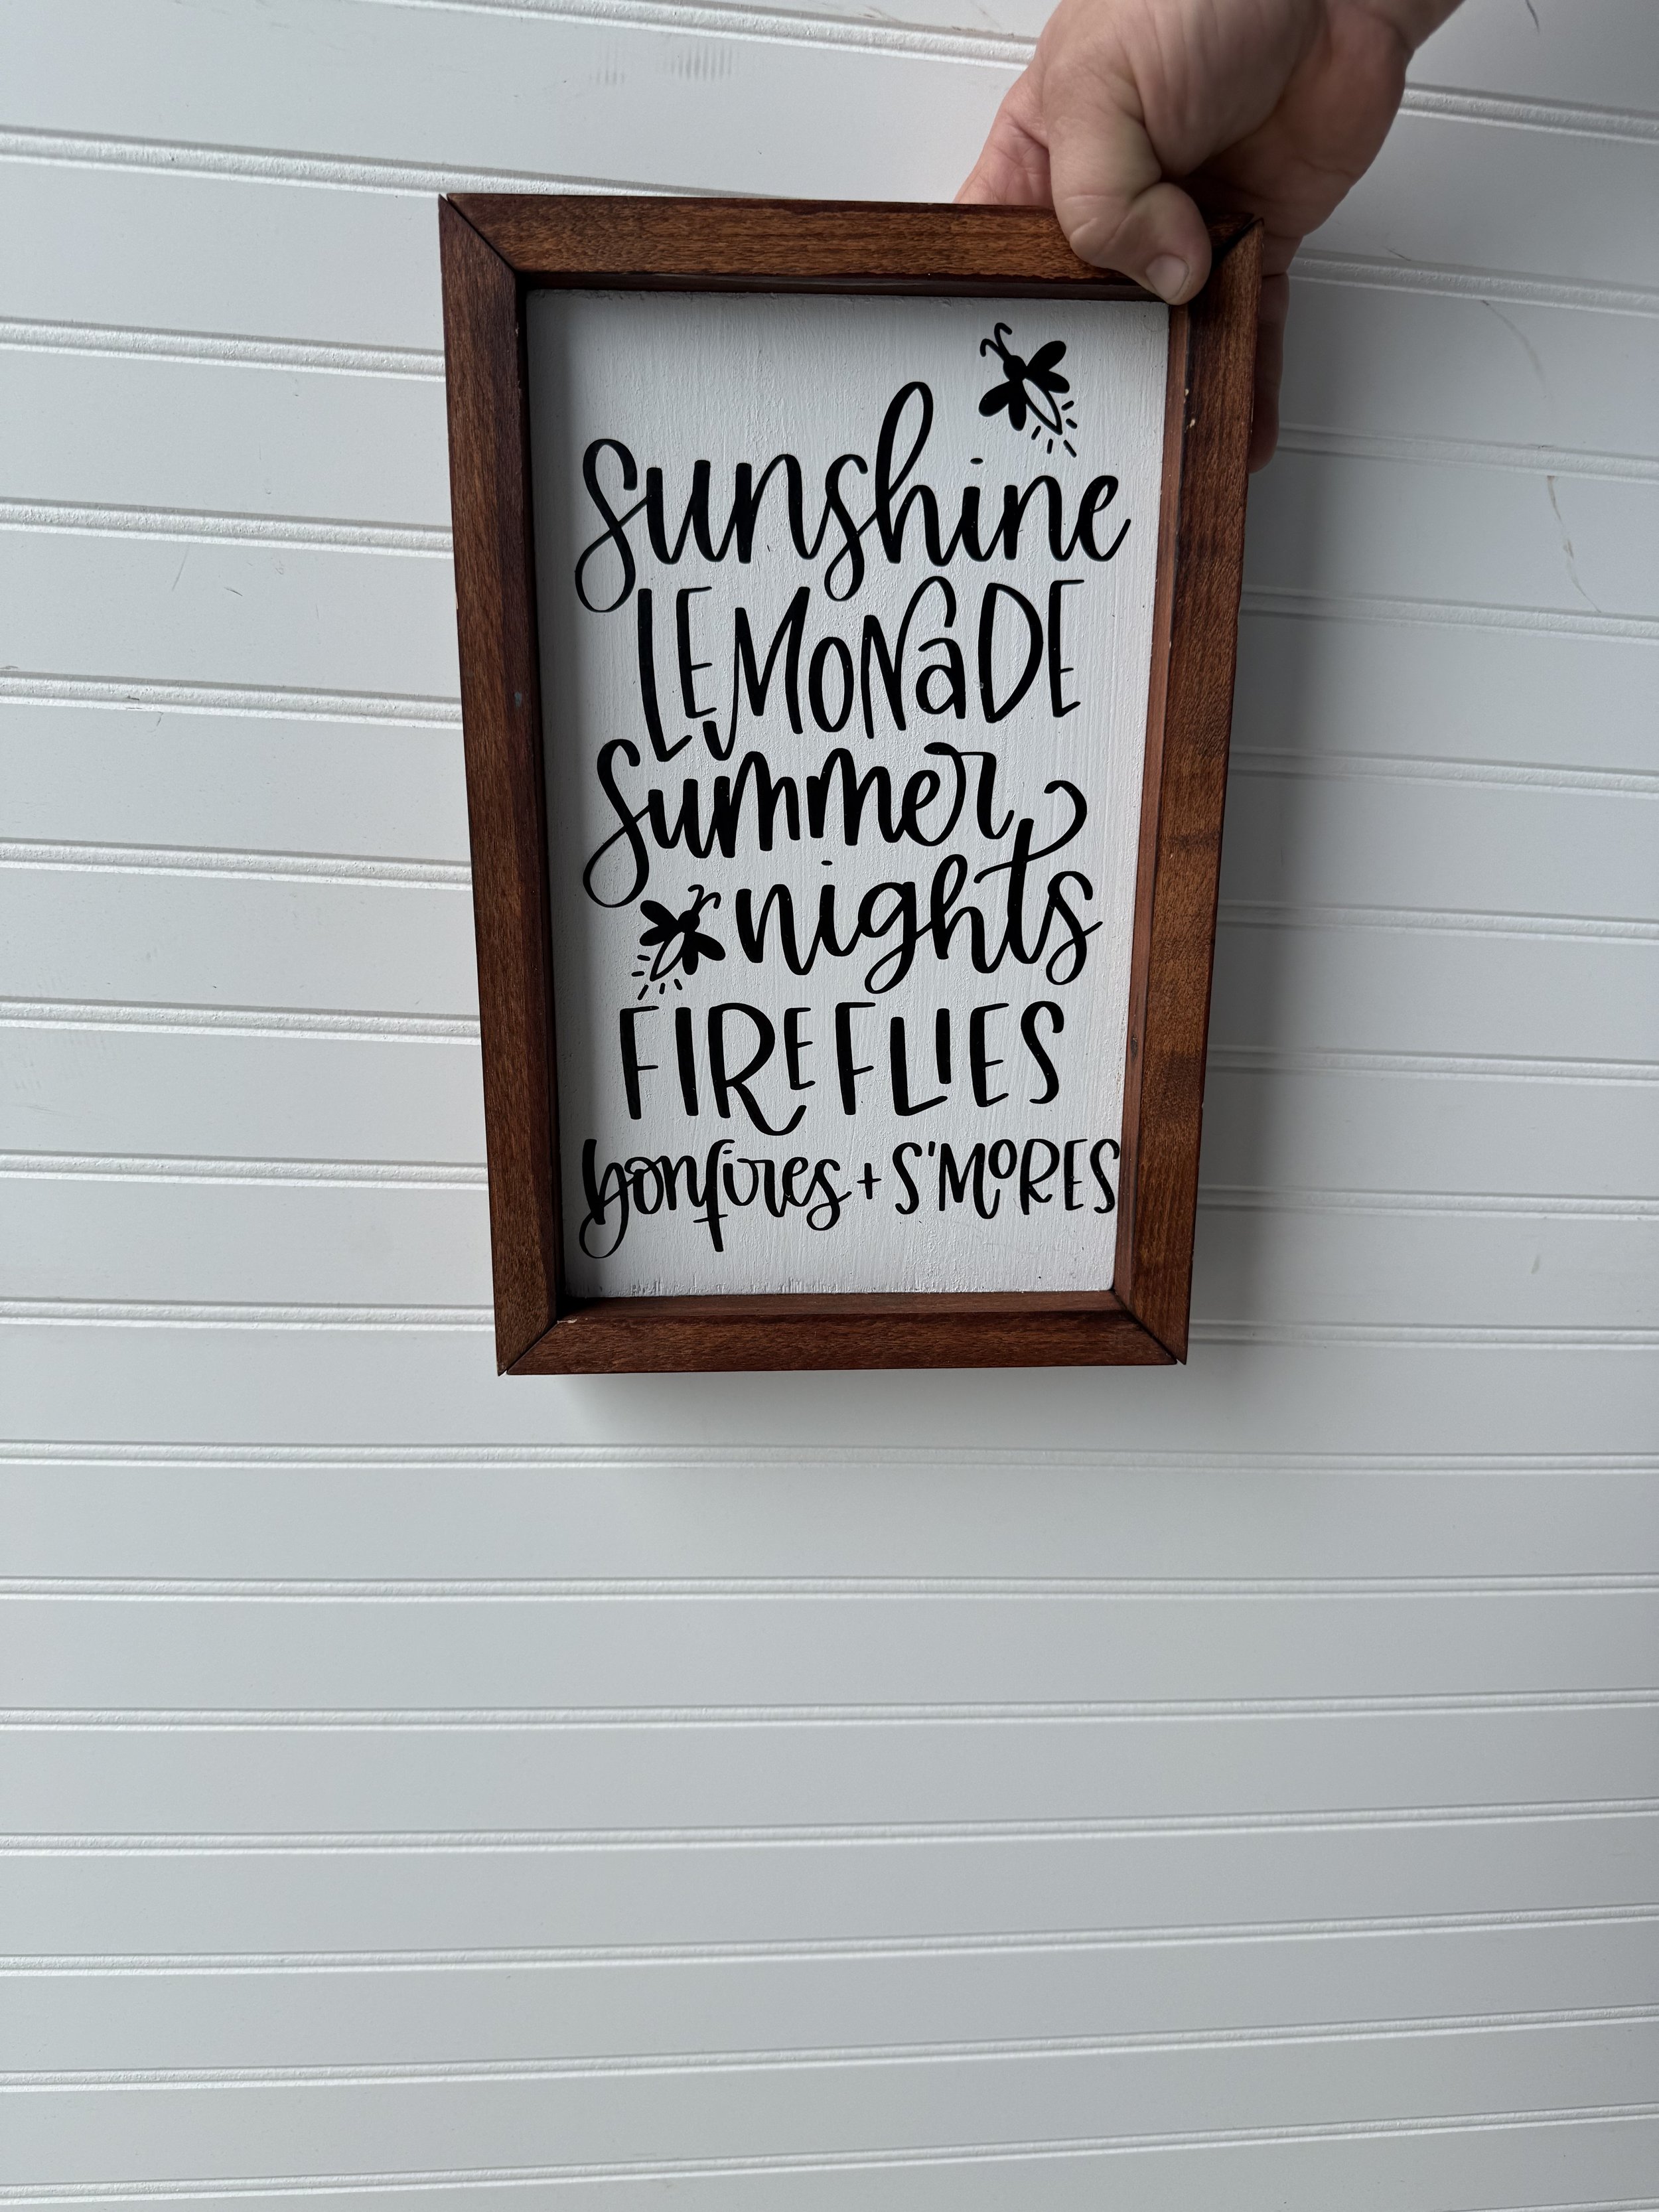 sunshine
LEMONaDE
summer
nights
FIREFLIES
bonfires + S'MORES